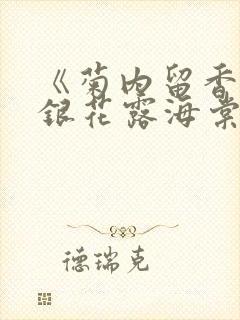 《菊内留香
銀花露海棠
德瑞克